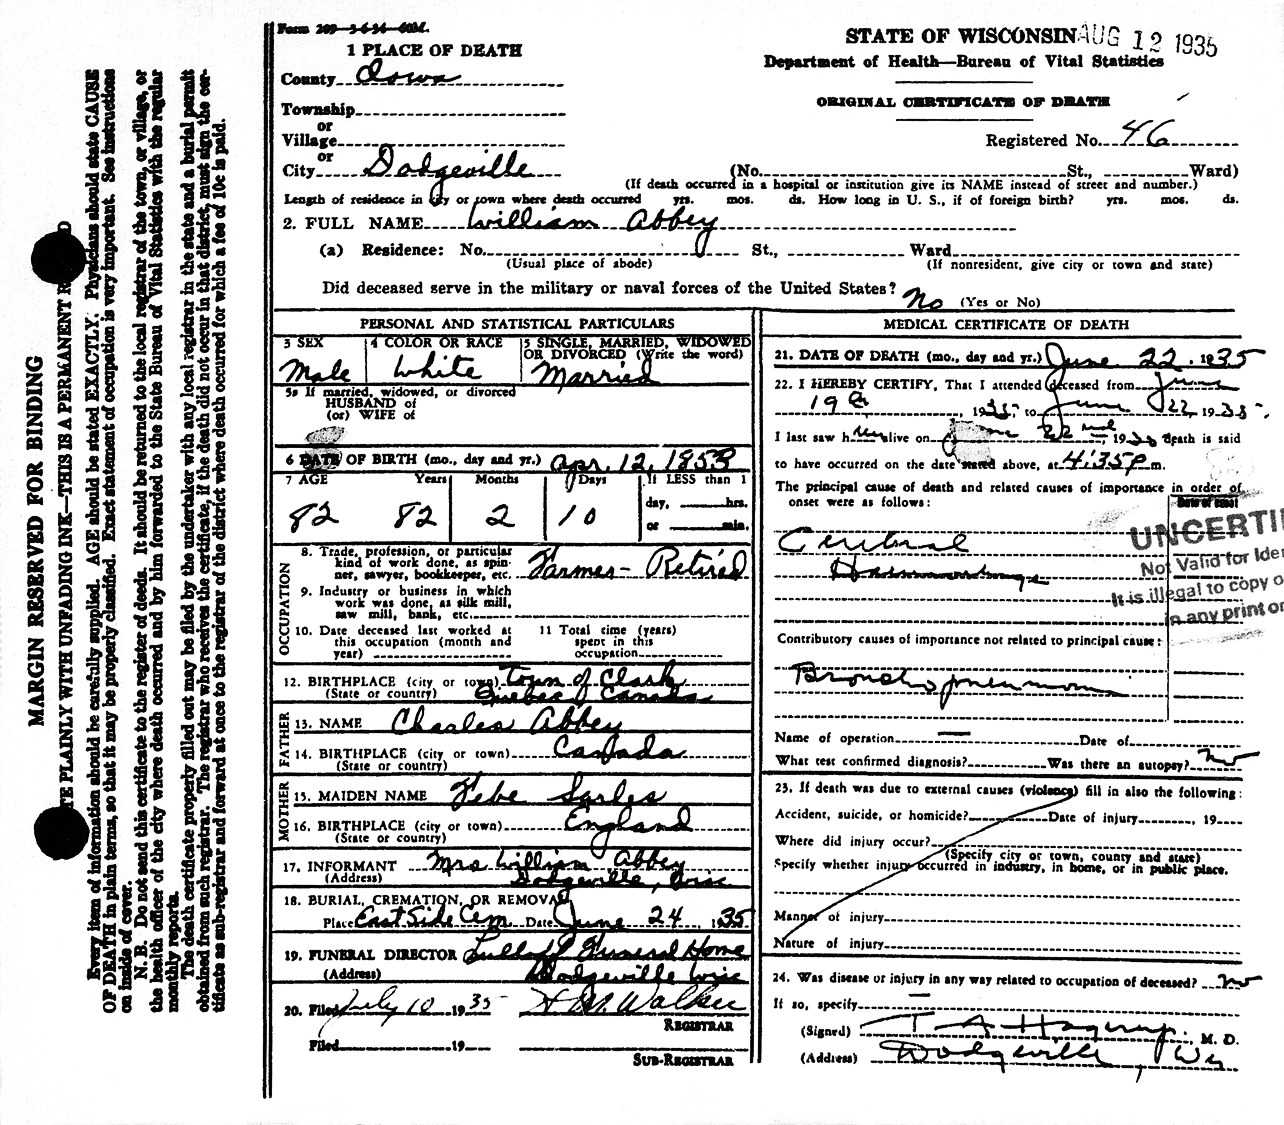 Form 209 3-6-34 60M.
STATE OF WISCONSIN AUG 12 1935
Department of Health—Bureau of Vital Statistics
ORIGINAL CERTIFICATE OF DEATH
Registered No. 46
1 PLACE OF DEATH
County Iowa
Township
or
Village
or
City Dodgeville (No. St., Ward)
(If death occurred in a hospital or institution give its NAME instead of street and number.)
Length of residence in city or town where death occurred yrs. mos. ds. How long in U. S., if of foreign birth? yrs. mos. ds.
2. FULL NAME William Abbey
(a) Residence: No. St., Ward
(Usual place of abode) (If nonresident, give city or town and state)
Did deceased serve in the military or naval forces of the United States? No (Yes or No)
PERSONAL AND STATISTICAL PARTICULARS
3 SEX Male
4 COLOR OR RACE White
5 SINGLE, MARRIED, WIDOWED OR DIVORCED (Write the word) Married
5a If married, widowed, or divorced
HUSBAND of
(or) WIFE of
6 DATE OF BIRTH (mo., day and yr.) Apr. 12, 1853
7 AGE Years Months Days If LESS than 1
82 82 2 10 day, hrs.
or min.
OCCUPATION
8. Trade, profession, or particular kind of work done, as spinner, sawyer, bookkeeper, etc. Farmer - Retired
9. Industry or business in which work was done, as silk mill, saw mill, bank, etc.
10. Date deceased last worked at this occupation (month and year)
11 Total time (years) spent in this occupation
12. BIRTHPLACE (city or town) Town of Clark
(State or country) Quebec of Canada
FATHER
13. NAME Charles Abbey
14. BIRTHPLACE (city or town) Canada
(State or country)
MOTHER
15. MAIDEN NAME Febe Sarles
16. BIRTHPLACE (city or town) England
(State or country)
17. INFORMANT Mrs William Abbey
(Address) Dodgeville, Wisc
18. BURIAL, CREMATION, OR REMOVAL
Place East Side Cem Date June 24, 1935
19. FUNERAL DIRECTOR Funeral Home
(Address) Dodgeville Wisc
20. Filed July 10 1935 H. M. Walker
REGISTRAR
Filed 19
SUB-REGISTRAR
MEDICAL CERTIFICATE OF DEATH
21. DATE OF DEATH (mo., day and yr.) June 22, 1935
22. I HEREBY CERTIFY, That I attended deceased from June
19th, 1935 to June 22 1935
I last saw him alive on June 22nd, 1935 death is said
to have occurred on the date stated above, at 4:35 P m.
The principal cause of death and related causes of importance in order of
onset were as follows:
Date of onset
Cerebral
Haemorrhage
UNCERTI
Not Valid for Iden
It is illegal to copy o
in any print or
Contributory causes of importance not related to principal cause:
Bronchopneumonia
Name of operation — Date of
What test confirmed diagnosis? Was there an autopsy? No
23. If death was due to external causes (violence) fill in also the following:
Accident, suicide, or homicide? Date of injury , 19
Where did injury occur?
(Specify city or town, county and state)
Specify whether injury occurred in industry, in home, or in public place.
Manner of injury
Nature of injury
24. Was disease or injury in any way related to occupation of deceased? No
If so, specify —
(Signed) T A Hagerup. M. D.
(Address) Dodgeville, Wis
MARGIN RESERVED FOR BINDING
TE PLAINLY WITH UNFADING INK—THIS IS A PERMANENT R D
Every item of information should be carefully supplied. AGE should be stated EXACTLY. Physicians should state CAUSE
OF DEATH in plain terms, so that it may be properly classified. Exact statement of occupation is very important. See instructions
on inside of cover.
N. B. Do not send this certificate to the register of deeds. It should be returned to the local registrar of the town, or village, or
the health officer of the city where death occurred and by him forwarded to the State Bureau of Vital Statistics with the regular
monthly reports.
The death certificate properly filled out may be filed by the undertaker with any local registrar in the state and a burial permit
obtained from such registrar. The registrar who receives the certificate, if the death did not occur in that district, must sign the cer-
tificate as sub-registrar and forward at once to the registrar of the district where death occurred for which a fee of 10c is paid.